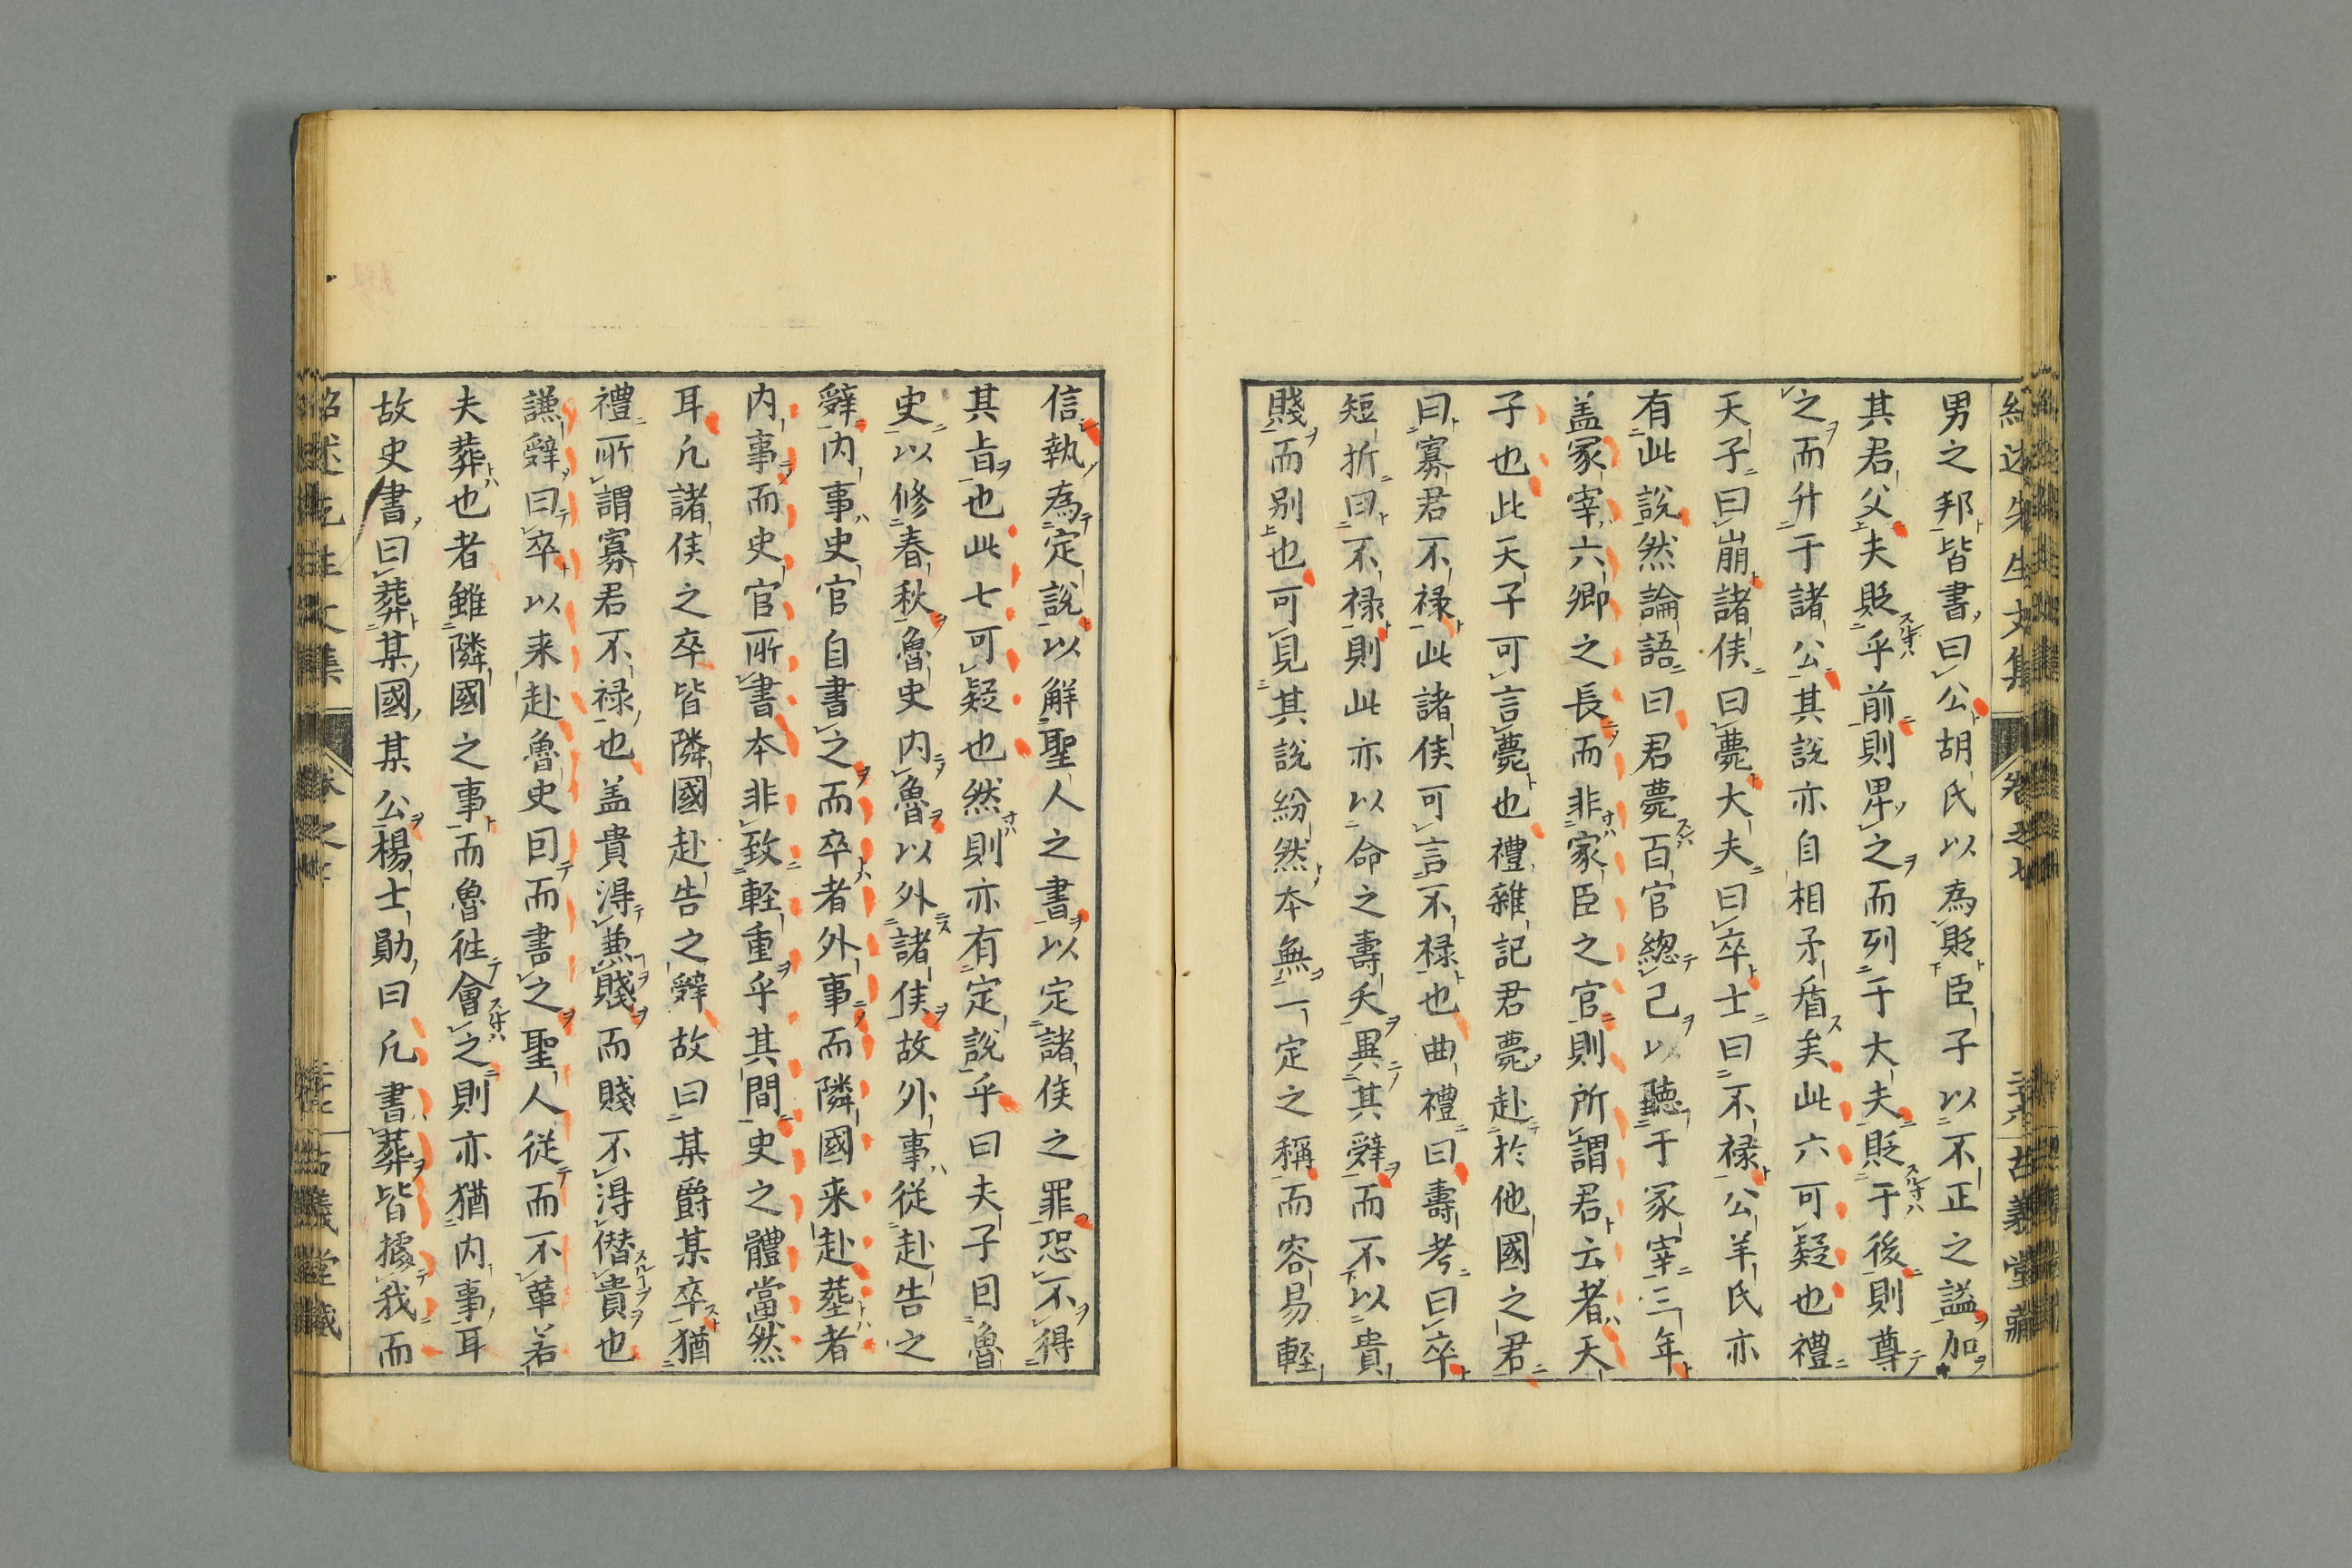 紹述先生文集 卷之七 二十六 古義堂藏
男之邦皆書曰公胡氏以為貶臣子以不正之謚加
其君父夫貶乎前則畀之而列于大夫貶于後則尊
之而升于諸公其説亦自相矛盾矣此六可疑也禮
天子曰崩諸侯曰薨大夫曰卒士曰不禄公羊氏亦
有此説然論語曰君薨百官緫己以聽于冢宰三年
盖冢宰六卿之長而非家臣之官則所謂君云者天
子也此天子可言薨也禮雜記君薨赴於他國之君
曰寡君不禄此諸侯可言不禄也曲禮曰壽考曰卒
短折曰不禄則此亦以命之壽夭異其辤而不以貴
賤而别也可見其説紛然本無一定之稱而容易輕
信執為定説以解聖人之書以定諸侯之罪恐不得
其㫖也此七可疑也然則亦有定説乎曰夫子因魯
史以修春秋魯史内魯以外諸侯故外事從赴告之
辤内事史官自書之而卒者外事而隣國来赴塟者
内事而史官所書本非致輕重乎其間史之體當然
耳凢諸侯之卒皆隣國赴告之辤故曰某爵某卒猶
禮所謂寡君不禄也盖貴得兼賤而賤不得僣貴也
謙辤曰卒以来赴魯史因而書之聖人從而不革若
夫葬也者雖隣國之事而魯徃會之則亦猶内事耳
故史書曰葬某國某公楊士勛曰凢書葬皆據我而
紹述先生文集 卷之七 二十七 古義堂藏